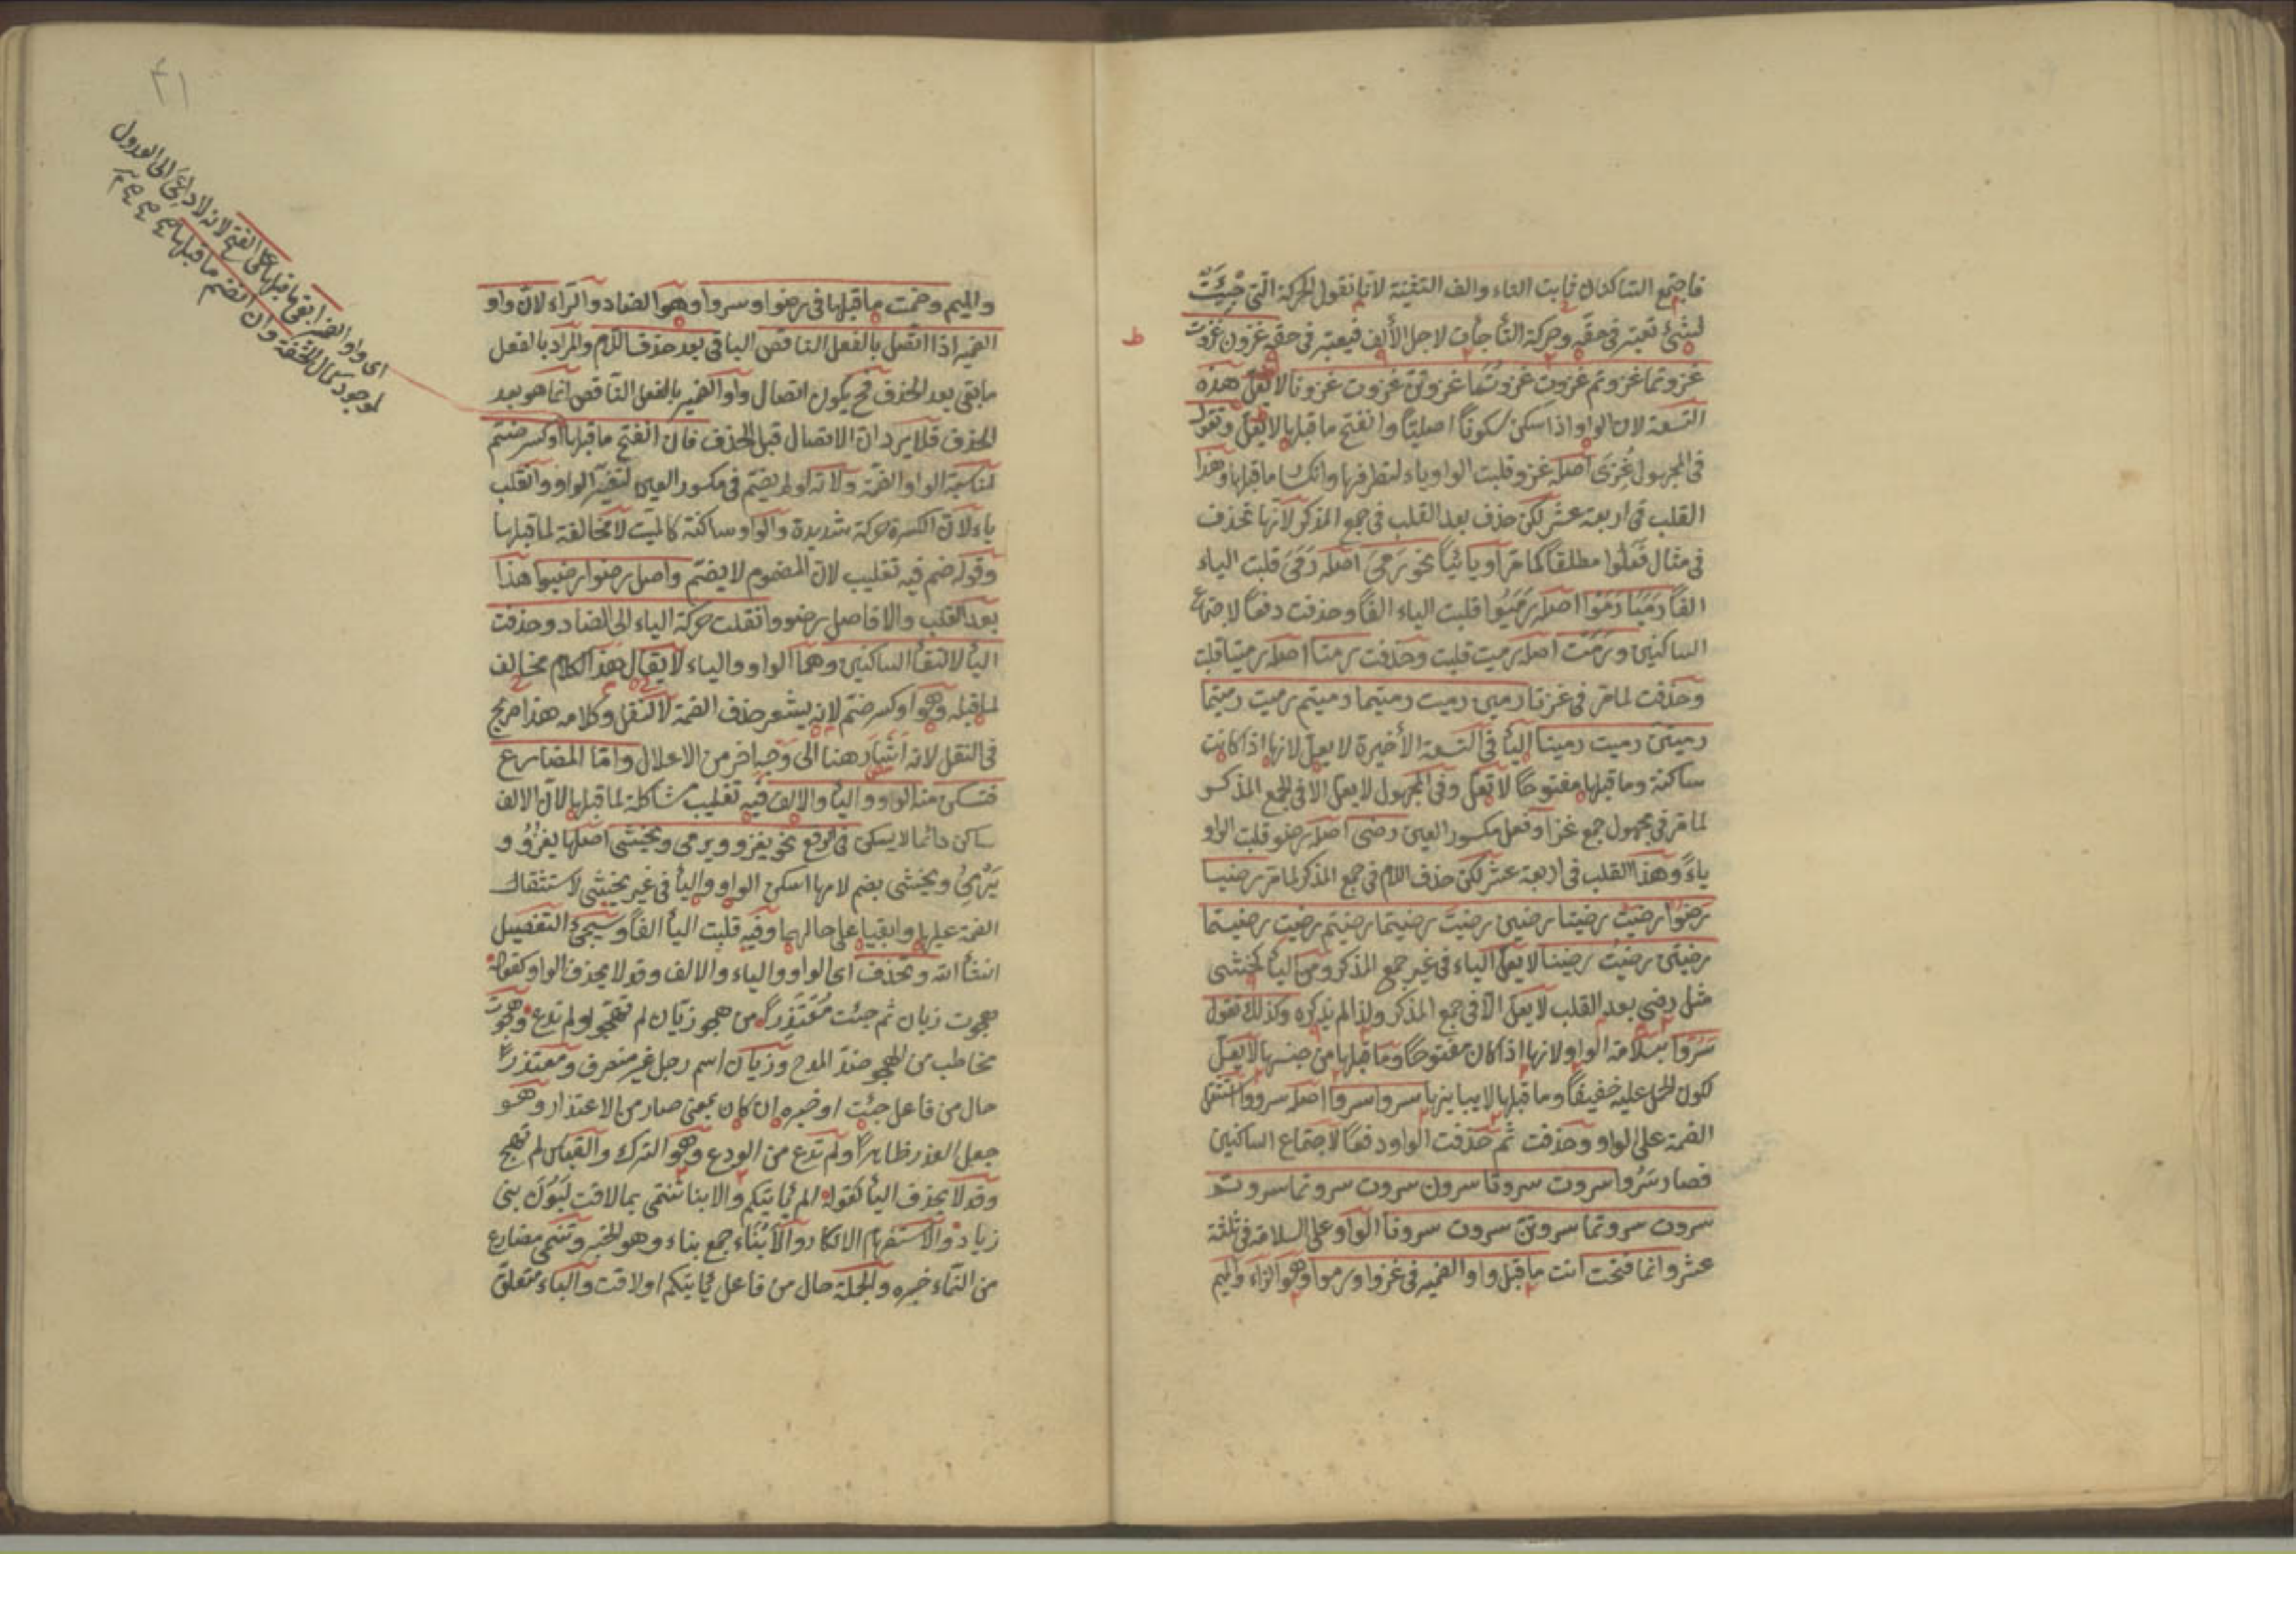 فاجتمع الساكنان ثابت التاء والف التثنية لانا نقول الحركة التي جيئت
لشئ تعتبر في حقه وحركة التاء جأت لاجل الألف فيعتبر في حقه غزون غزوت
غزوتما غزوتم غزوت غزوتما غزوتن غزوت غزونا لا تعل هذه
التسعة لان الواو اذا سكن سكونا اصليا وانفتح ما قبلها لا يعل وتقول
في المجهول غُزِىَ اصله غزو قلبت الواو ياء لتطرفها وانكسار ما قبلها وهذا
القلب في اربعة عشر لكن حذف بعد القلب في جمع المذكر لانها تحذف
في مثال فعلوا مطلقا كما مر او يائيا نحو رمى اصله رَمَىَ قلبت الياء
الفا رميا رموا اصله رَمَيُوا قلبت الياء الفا وحذفت دفعا لاجتماع
الساكنين ورمت اصله رميت قلبت وحذفت رمتا اصله رميتا قلبت
وحذفت لما مر في غزتا رمين رميت رميتما رميتم رميت رميتما
رميتن رميت رمينا اليأ في التسعة الأخيرة لا يعل لانها اذا كانت
ساكنة وما قبلها مفتوحا لا تعل وفي المجهول لا يعل الا في الجمع المذكر
لما مر في مجهول جمع غزا وفعل مكسور العين رضى اصله رضو قلبت الواو
ياءً وهذا القلب في اربعة عشر لكن حذف اللام في جمع المذكر لما مر رضيا
رضوا رضيت رضيتا رضين رضيت رضيتما رضيتم رضيت رضيتما
رضيتن رضيت رضينا لا يعل الياء في غير جمع المذكر ومن اليأ كخشى
مثل رضى بعد القلب لا يعل الا في جمع المذكر ولذا لم يذكره وكذلك تقول
سَرُوَا بسلامة الواو لانها اذا كان مفتوحا وما قبلها من جنسها لا يعل
لكون الحمل عليه خفيفا وما قبلها لا يباينها سروا سروا اصله سرووا استثقل
الضمة على الواو وحذفت ثم حذفت الواو دفعا لاجتماع الساكنين
فصار سَرُوا سروت سروتا سرون سروت سروتما سروتم
سروت سروتما سروتن سروت سرونا الواو على السلامة في ثلثة
عشر وانما فتحت انت ما قبل واو الضمير في غزوا ورموا وهو الزاء والميم
٤١
والميم وضمت ما قبلها في رضوا وسروا وهو الضاد والراء لان واو
الضمير اذا اتصل بالفعل الناقص الباقي بعد حذف اللام والمراد بالفعل
ما بقى بعد الحذف فح يكون اتصال واو الضمير بالفعل الناقص انما هو بعد
الحذف فلا يرد ان الاتصال قبل الحذف فان انفتح ما قبلها او كسر ضم
لمناسبة الواو الضمة ولانه لو لم يضم في مكسور العين لتغير الواو وانقلب
ياء لان الكسرة حركة شديدة والواو ساكنة كالميت لا مخالفة لما قبلها
وقوله ضم فيه تغليب لان المضموم لا يضم واصل رضوا رضيوا هذا
بعد القلب والا فاصل رضووا نقلت حركة الياء الى الضاد وحذفت
اليأ لالتقأ الساكنين وهما الواو والياء لا يقال هذا الكلام مخالف
لما قبله وهو او كسر ضم لانه يشعر حذف الضمة لا النقل وكلامه هذا صريح
في النقل لانه اشار هنا الى وجه اخر من الاعلال واما المضارع
فتسكن منه الواو واليأ والالف فيه تغليب مشاكلة لما قبلها لان الالف
ساكن دائما لا يسكن في الرفع نحو يغزو ويرمى ويخشى اصلها يغزُوُ و
يَرْمِىُ ويخشى بضم لامها اسكن الواو واليأ في غير يخشى لاستثقال
الضمة عليها وابقيا على حالهما وفيه قلبت اليأ الفا وسيجئ التفصيل
انشأ الله وتحذف اى الواو والياء والالف وقد لا يحذف الواو كقوله
هجوت زبان ثم جئت معتذرا من هجو زبان لم تهجو ولم تدع وهجوت
مخاطب من الهجو ضد المدح وزبان اسم رجل غير منصرف ومعتذرا
حال من فاعل جئت او خبره ان كان بمعنى صار من الاعتذار وهو
جعل العذر ظاهرا ولم تدع من الودع وهو الترك والقياس لم تهج
وقد لا يحذف اليأ كقوله الم يأتيكم والابنا تنتمى بما لاقت لبون بنى
زياد والاستفهام الانكار والأنباء جمع بناء وهو الخبر وتنمى مضارع
من النماء خبره والجملة حال من فاعل يأتيكم او لاقت والباء متعلق
اى واو الضمير ابقى ما قبلها على الفتح لانه لا داعى الى العدول
لوجود كمال الخفة وان انضم ما قبلها